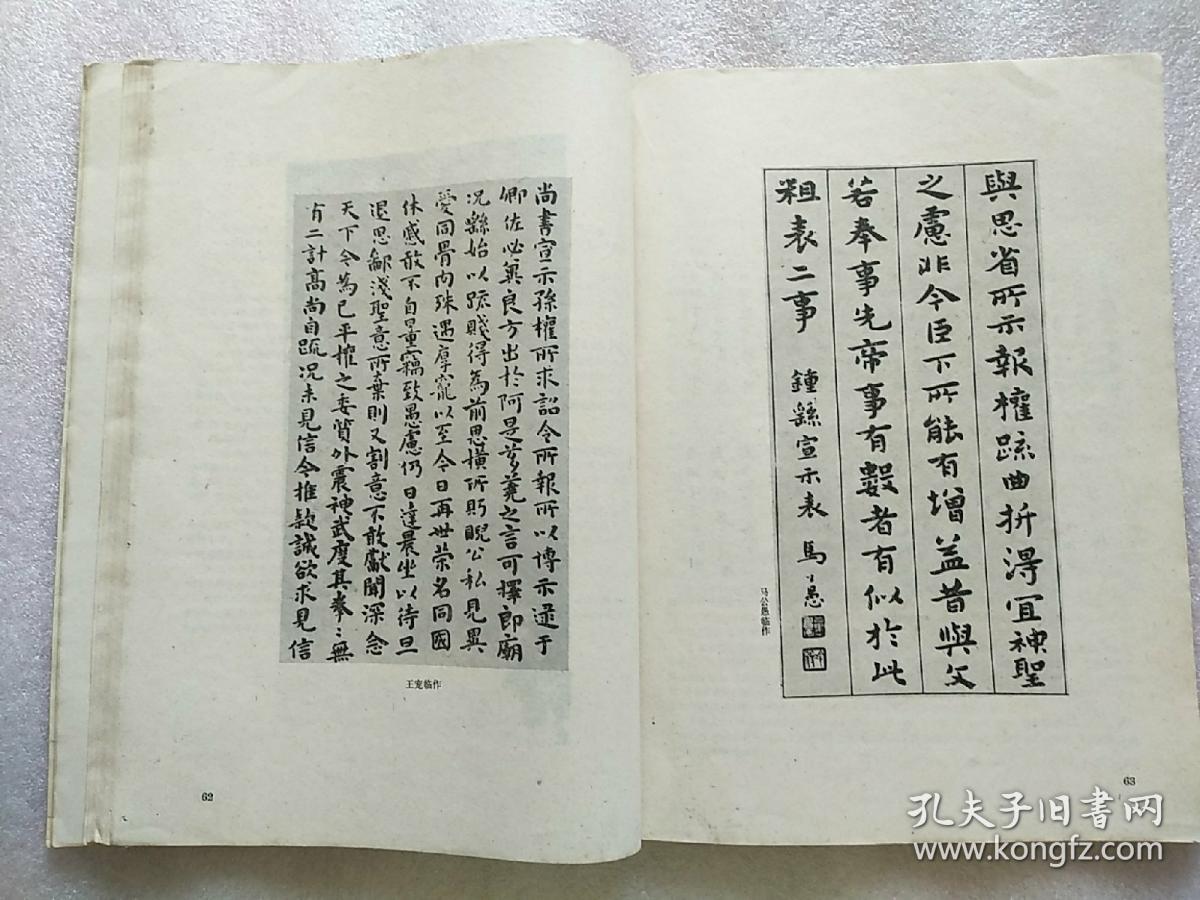 尚書宣示孫權所求詔令所報所以博示逮于
卿佐必冀良方出於阿是芻蕘之言可擇郎廟
況繇始以疏賤得為前恩橫所眄睨公私見異
愛同骨肉殊遇厚寵以至今日再世榮名同國
休慼敢不自量竊致愚慮仍日達晨坐以待旦
退思鄙淺聖意所棄則又割意不敢獻聞深念
天下今為已平權之委質外震神武度其拳〻無
有二計高尚自疏況未見信今推款誠欲求見信
王宠临作
62
與思省所示報權疏曲折得宜神聖
之慮非今臣下所能有增益昔與文
若奉事先帝事有數者有似於此
粗表二事 鍾繇宣示表 馬公愚
马公愚临作
63
孔夫子旧书网
www.kongfz.com